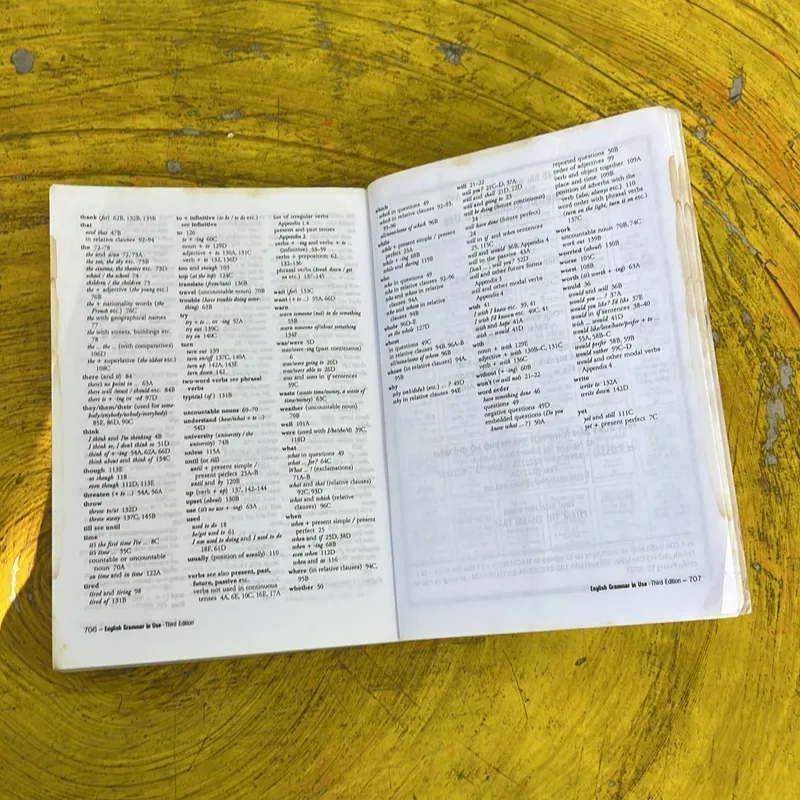 thank (for) 62B, 132B, 135B
that
said that 47B
in relative clauses 92–94
the 72–78
the and a/an 72, 73A
the sea, the sky etc. 73B
the cinema, the theatre etc. 73D
school / the school 74
children / the children 75
the + adjective (the young etc.)
76B
the + nationality words (the
French etc.) 76C
the with geographical names
77
the with streets, buildings etc.
78
the ... the ... (with comparatives)
106D
the + superlative (the oldest etc.)
108C
there (and it) 84
there's no point in ... 63A
there will /must / should etc. 84B
there is + -ing or -ed 97D
they/them/their (used for
85E, 86D, 90C
think
I think and I'm thinking 4B
I think so, I don't think so 51D
think of + -ing 54A, 62A, 66D
think about and think of 134C
though 113E
as though 118
even though 112D, 113E
threaten (+ to ...) 54A, 56A
throw
throw to/at 132D
throw away 137C, 145B
till see until
time
it's the first time I've ... 8C
it's time ... 35C
countable or uncountable
noun 70A
on time and in time 122A
tired
tired and tiring 98
tired of 131B
706 – English Grammar in Use -Third Edition
to + infinitive (to be / to do etc.)
see infinitive
to 126
to + -ing 60C
noun + to 129D
adjective + to 130A, 131C
verb + to 132, 136D
too and enough 103
top (at the top) 124C
translate (from/into) 136B
travel (uncountable noun) 70B
trouble (have trouble doing some-
thing) 63B
try
try + to ... or -ing 57A
try out 139C
try on 140C
turn
turn out 139
turn on/off 137C, 140A
turn up 142A, 143E
turn down 142
two-word verbs see phrasal
verbs
typical (of) 131B
uncountable nouns 69–70
understand (how/what + to ...)
54D
university (university / the
university) 74B
unless 115A
until (or till)
until + present simple /
present perfect 25A–B
until and by 120B
up (verb + up) 137, 142–144
upset (about) 130B
use (it's no use + -ing) 63A
used
used to do 18
be/get used to 61
I am used to doing and I used to do
18F, 61D
usually (position of usually) 110
verbs see also present, past,
future, passive etc.
verbs not used in continuous
tenses 4A, 6E, 10C, 16E, 17A
list of irregular verbs
Appendix 1.4
present and past tenses
Appendix 2
verbs + -ing and verbs + to ...
(infinitive) 53–59
verbs + preposition 62,
132–136
phrasal verbs (break down / get
on etc.) 137–145
wait (for) 133C
want (+ to ...) 55A, 66D
warn
warn someone (not) to do something
55B
warn someone of/about something
134F
was/were 5D
was/were -ing (past continuous)
6
was/were going to 20D
was/were able to 26D
was and were in if sentences
39C
waste (waste time/money, a waste of
time/money) 63C
weather (uncountable noun)
70B
well 101A
were (used with I/he/she/it) 39C,
118D
what
what in questions 49
what ... for? 64C
What ... ! (exclamations)
71A–B
what and that (relative clauses)
92C, 93D
what and which (relative
clauses) 96C
when
when + present simple / present
perfect 25
when and if 25D, 38D
when + -ing 68B
even when 112D
when and as 116
where (in relative clauses) 94C,
95B
whether 50
which
which in questions 49
which in relative clauses 92–93,
95–96
all/none/some of which 96B
while
while + present simple / present
perfect 25A
while + -ing 68B
while and during 119B
who
who in questions 49
who in relative clauses 92–96
who and whose in relative
clauses 94A
who and whom in relative
clauses 94B
whole 90D–E
on the whole 127D
whom
in questions 49C
in relative clauses 94B, 96A–B
all/none/some of whom 96B
whose (in relative clauses) 94A,
95B
why
why isn't/didn't (etc.) ... ? 49D
why in relative clauses 94E
will 21–22
will you? 21C–D, 37A
will and shall 21D, 22D
will and going to 23
will be doing (future continuous)
24
will have done (future perfect)
24
will in if and when sentences
25, 115C
will and would 36B, Appendix 4
will in the passive 43A
Don't ... will you? 52D
will and other future forms
Appendix 3
will and other modal verbs
Appendix 4
wish 41
I wish I knew etc. 39, 41
I wish I'd known etc. 40C, 41
wish and hope 41A
wish ... would 41D
with
noun + with 129E
adjective + with 130B–C, 131C
verb + with 136C
without (+ -ing) 60B
won't (= will not) 21–22
word order
have something done 46
questions 49
negative questions 49D
embedded questions (Do you
know what ... ?) 50A
reported questions 50B
order of adjectives 99
verb and object together 109A
place and time 109B
position of adverbs with the
verb (also, always etc.) 110
word order with phrasal verbs
(turn on the light, turn it on etc.)
137C
work
uncountable noun 70B, 74C
work out 139B
worried (about) 130B
worse 105C
worst 108B
worth (it's worth + -ing) 63A
would 36
would and will 36B
would you ... ? 37A
would you like? I'd like 37E
would in if sentences 38–40
wish ... would 41D
would like/love/hate/prefer + to ...
55A, 58B–C
would prefer 58B, 59B
would rather 59C–D
would and other modal verbs
Appendix 4
write
write to 132A
write down 142D
yet
yet and still 111C
yet + present perfect 7C
English Grammar in Use -Third Edition – 707